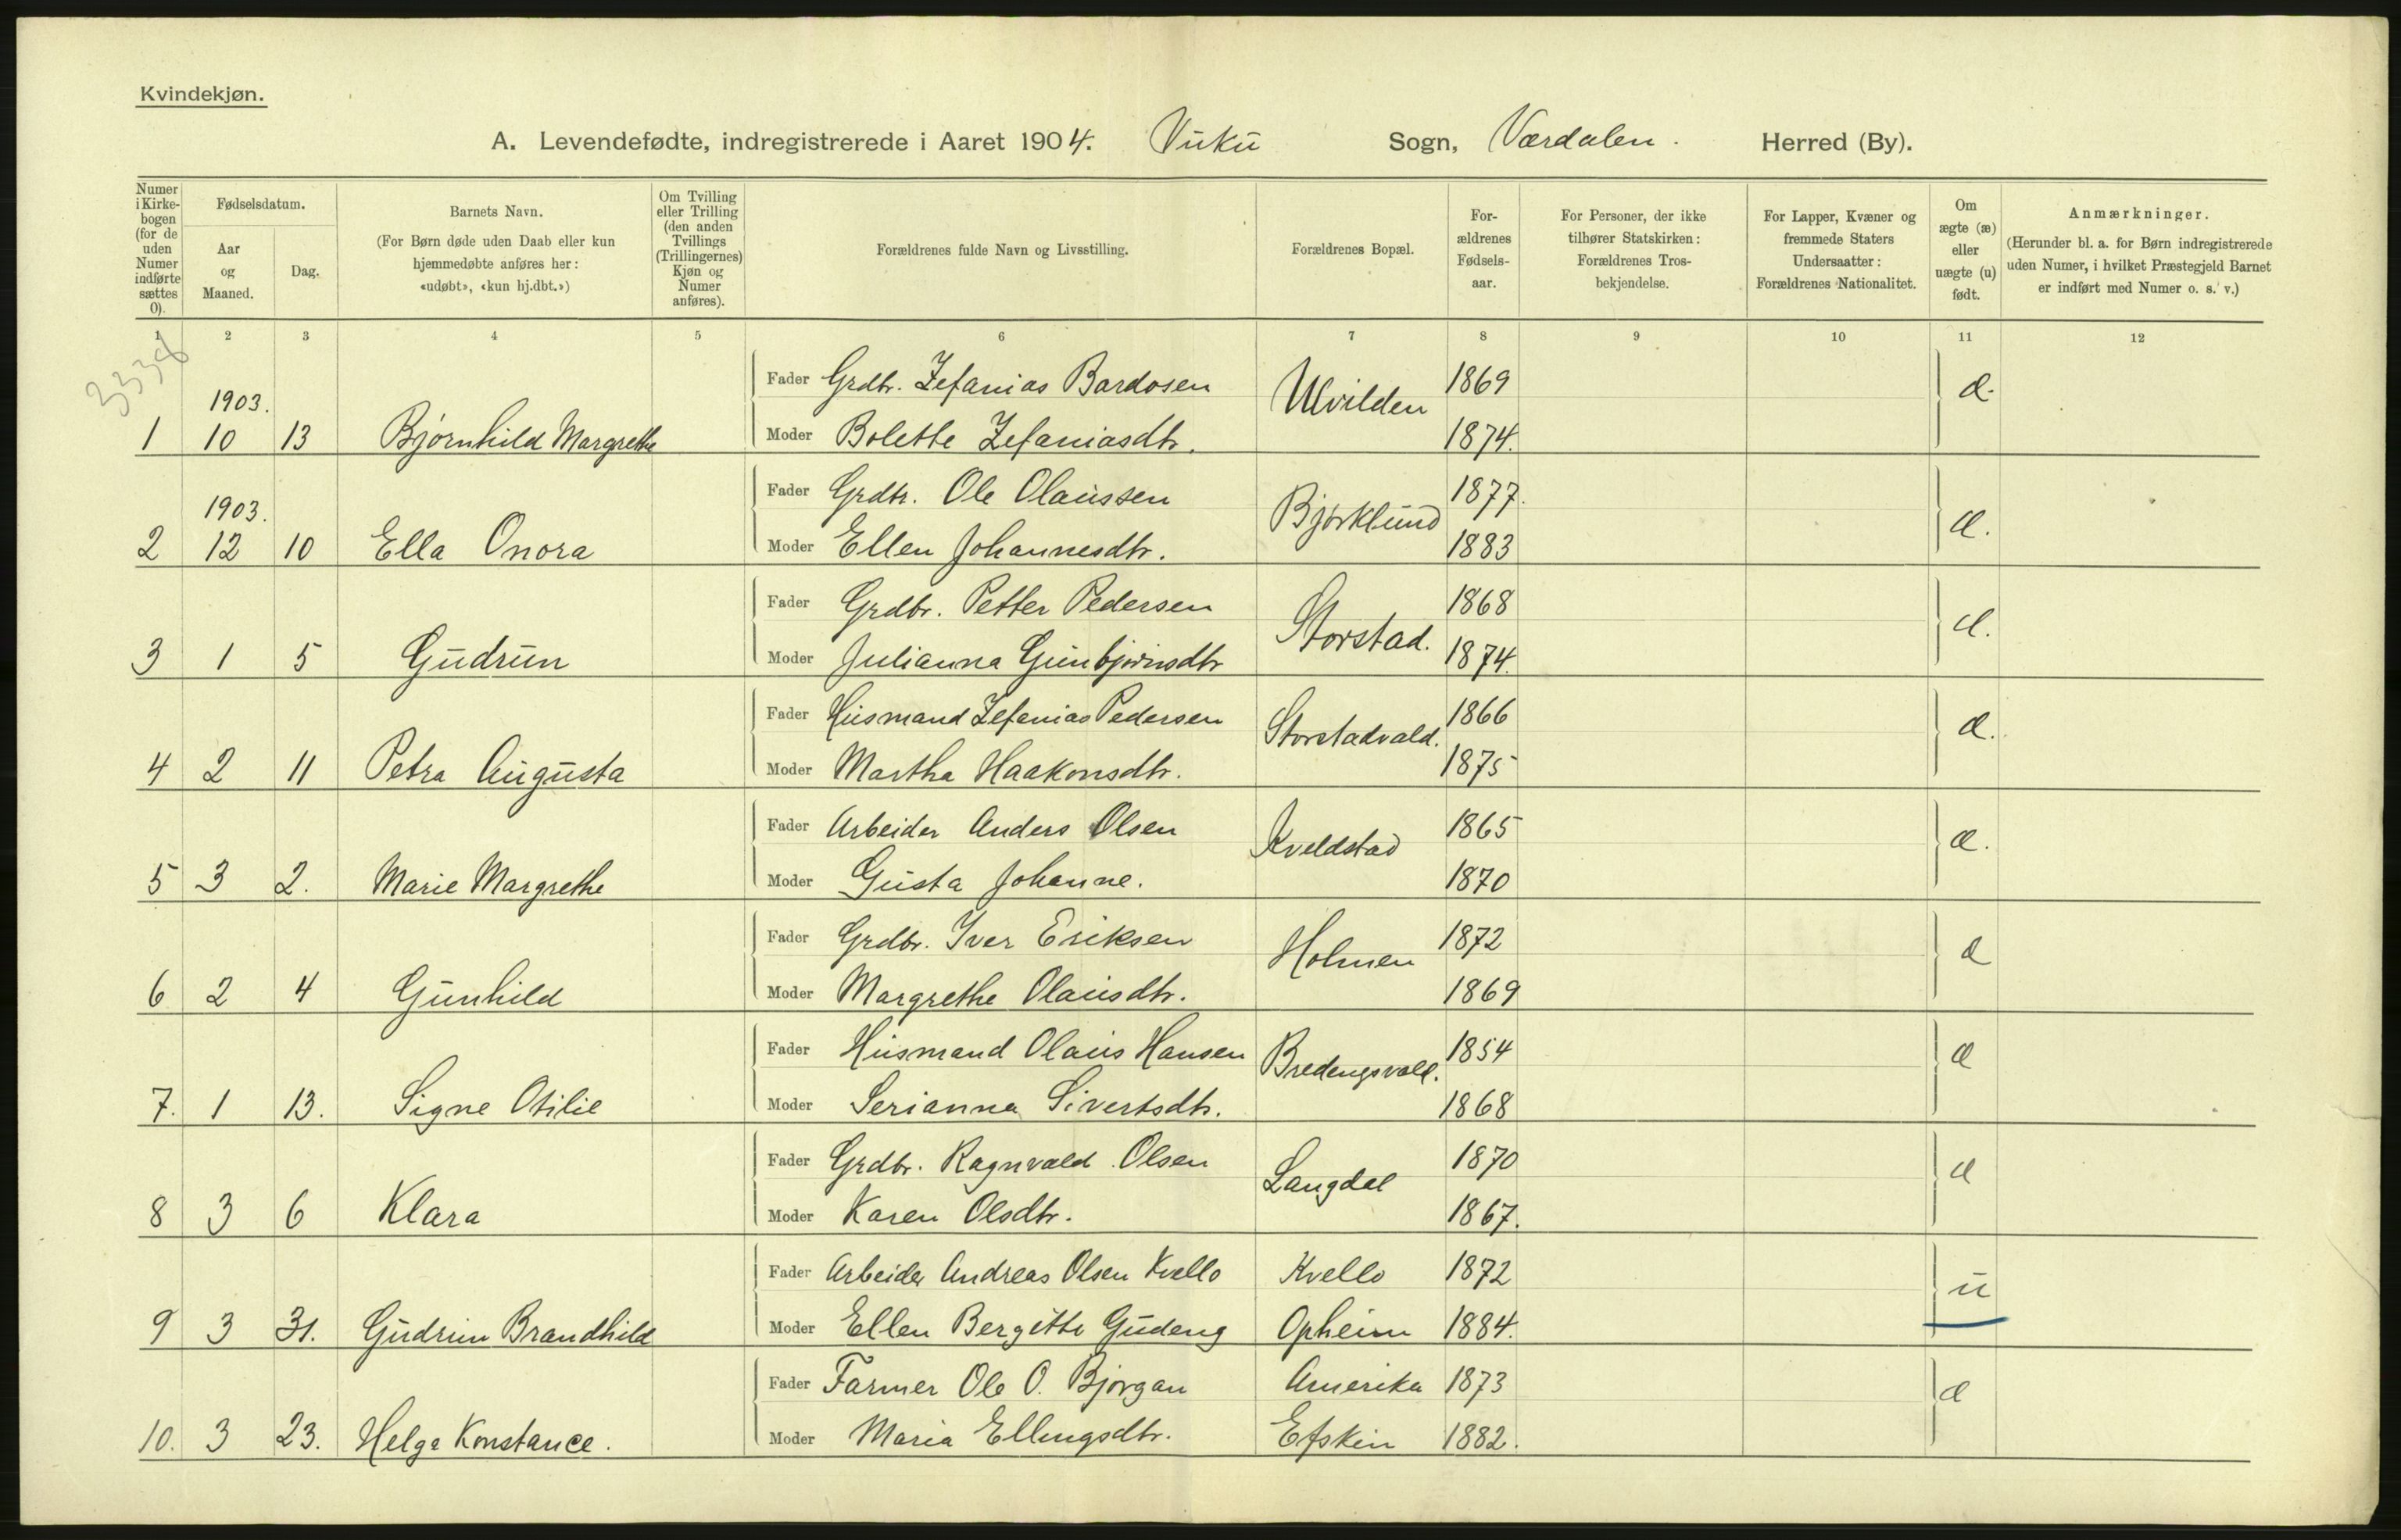 Kvindekjøn.
A. Levendefødte, indregistrerede i Aaret 1904. Vuku Sogn, Værdalen. Herred (By).
Numer i Kirke-bogen (for de uden Numer indførte sættes 0).
Fødselsdatum.
Aar og Maaned.
Dag.
Barnets Navn.
(For Børn døde uden Daab eller kun hjemmedøbte anføres her: «udøbt», «kun hj.dbt.»)
Om Tvilling eller Trilling (den anden Tvillings (Trillingernes) Kjøn og Numer anføres).
Forældrenes fulde Navn og Livsstilling.
Forældrenes Bopæl.
For-ældrenes Fødsels-aar.
For Personer, der ikke tilhører Statskirken: Forældrenes Tros-bekjendelse.
For Lapper, Kvæner og fremmede Staters Undersaatter: Forældrenes Nationalitet.
Om ægte (æ) eller uægte (u) født.
Anmærkninger.
(Herunder bl. a. for Børn indregistrerede uden Numer, i hvilket Præstegjeld Barnet er indført med Numer o. s. v.)
1 2 3 4 5 6 7 8 9 10 11 12
3338
Fader Grdbr. Zefanias Bardosen Ulvilden 1869 æ.
1903.
1 10 13 Bjørnhild Margrethe Moder Bolette Zefaniasdtr. 1874.
Fader Grdbr. Ole Olaussen Bjørklund 1877. æ.
1903.
2 12 10 Ella Onora Moder Ellen Johannesdtr. 1883
Fader Grdbr. Petter Pedersen Storstad. 1868 æ.
3 1 5 Gudrun Moder Julianna Gunbjørnsdtr 1874.
Fader Husmand Zefanias Pedersen Storstadvald. 1866 æ.
4 2 11 Petra Augusta Moder Martha Haakonsdtr. 1875
Fader Arbeider Anders Olsen Kveldstad 1865 æ.
5 3 2. Marie Margrethe Moder Gusta Johanne. 1870
Fader Grdbr. Iver Eriksen Holmen 1872 æ
6 2 4 Gunhild Moder Margrethe Olausdtr. 1869
Fader Husmand Olaus Hansen Bredengsvald. 1854 æ
7. 1 13. Signe Otilie Moder Serianna Sivertsdtr. 1868
Fader Grdbr. Ragnvald Olsen Langdal 1870 æ
8 3 6 Klara Moder Karen Olsdtr. 1867.
Fader Arbeider Andreas Olsen Kvello Kvello 1872 u
9 3 31. Gudrun Brandhild Moder Ellen Bergitte Gudeng Opheim 1884.
Fader Farmer Ole O. Bjørgan Amerika 1873 æ
10. 3 23. Helga Konstance. Moder Maria Ellingsdtr. Efskin 1882.